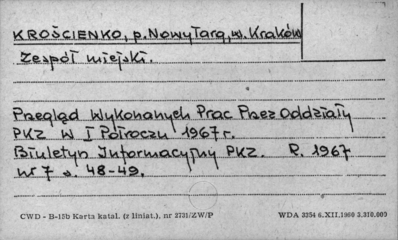 KROŚCIENKO, p. Nowy Targ, w. Kraków
Zespół miejski.
Przegląd Wykonanych Prac Przez Oddziały
PKZ W I Półroczu 1967 r.
Biuletyn Informacyjny PKZ. R. 1967
nr 7 s. 48-49.
CWD - B-15b Karta katal. (z liniat.), nr 3731/ZW/P
WDA 3354 6.XII.1960 3.310.003